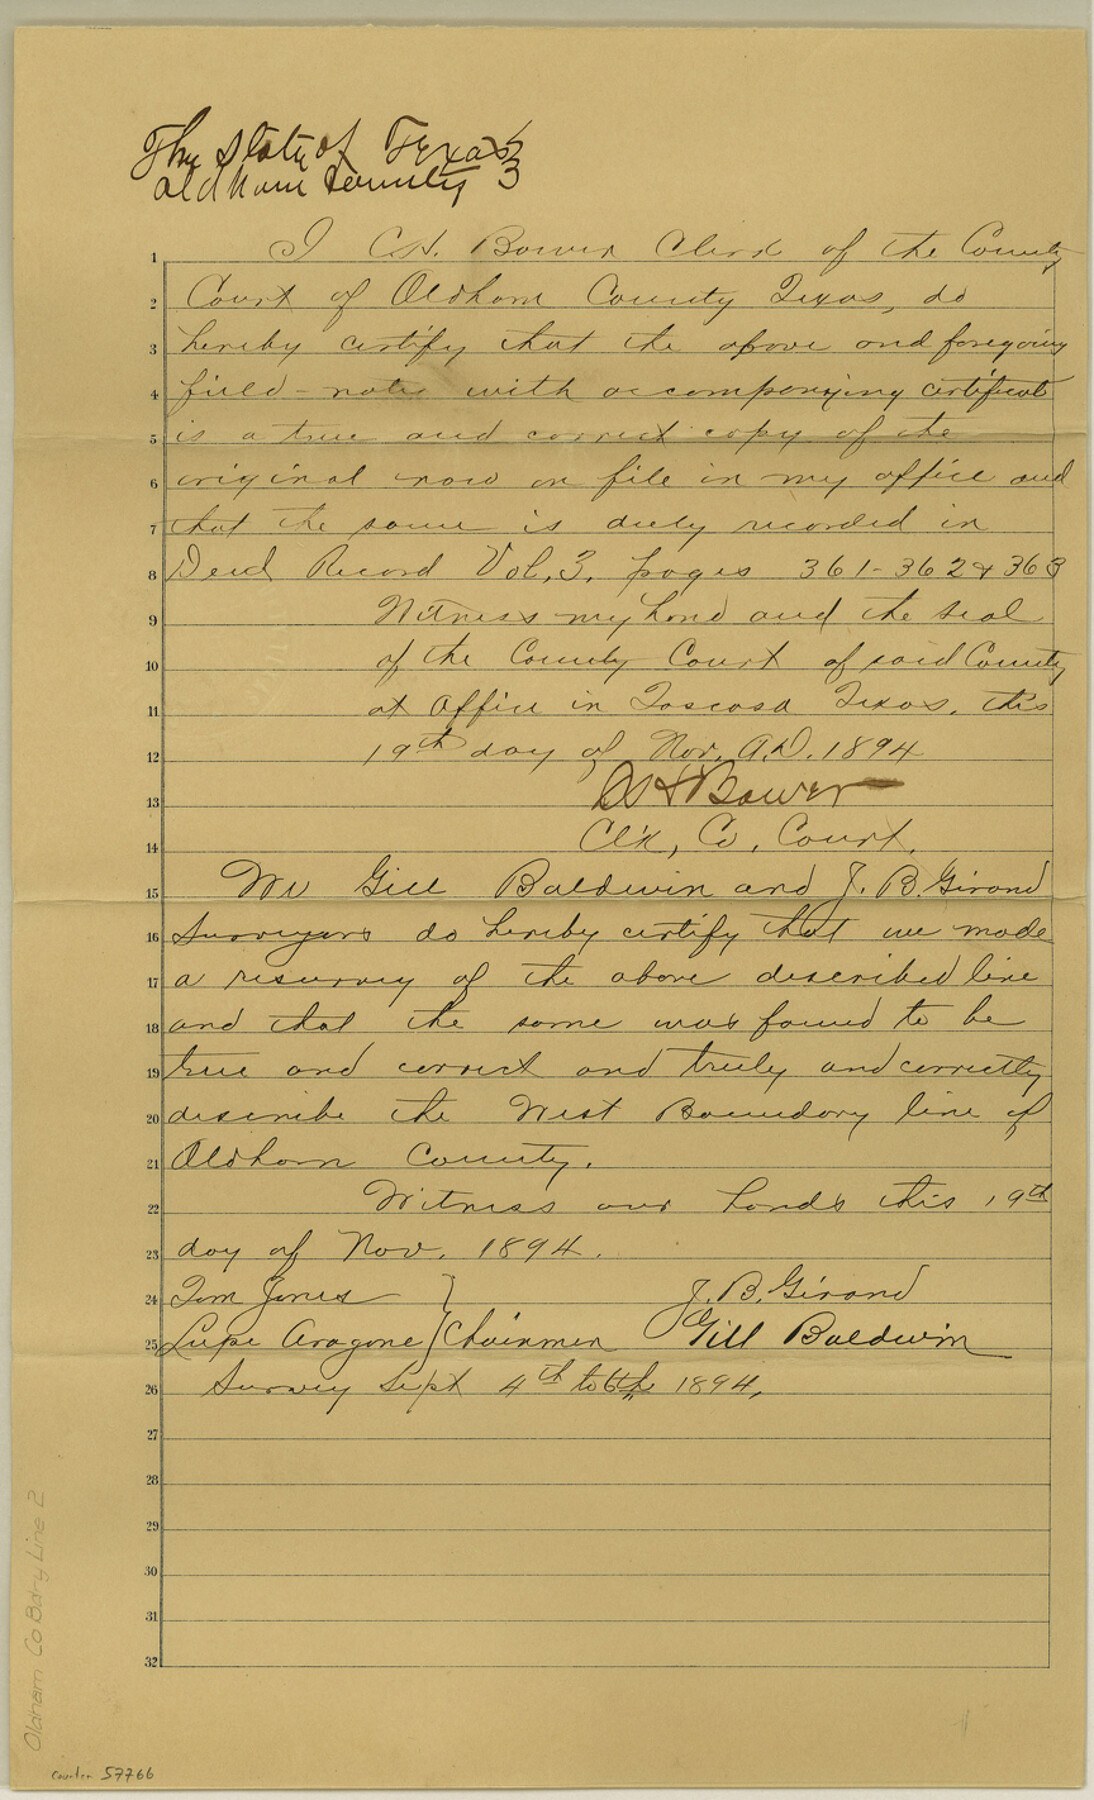 The State of Texas }
Oldham County }
1 I C.H. Bower Clerk of the County
2 Court of Oldham County Texas, do
3 hereby certify that the above and foregoing
4 field-notes with accompanying certificate
5 is a true and correct copy of the
6 original now on file in my office and
7 that the same is duly recorded in
8 Deed Record Vol, 3, pages 361-362 & 363
9 Witness my hand and the seal
10 of the County Court of said County
11 at Office in Tascosa Texas, this
12 19th day of Nov. A.D. 1894
13 C H Bower
14 Cl'k, Co, Court.
15 We Gill Baldwin and J. B. Girand
16 surveyors do hereby certify that we made
17 a resurvey of the above described line
18 and that the same was found to be
19 true and correct and truly and correctly
20 describe the West Boundary line of
21 Oldham County.
22 Witness our hands this 19th
23 day of Nov. 1894.
24 Tom Jones } J. B. Girand
25 Lupe Aragone } Chainmen Gill Baldwin
26 Survey Sept 4th to 6th 1894,
27
28
29
30
31
32
Oldham Co Bdry Line 2
counter 57766